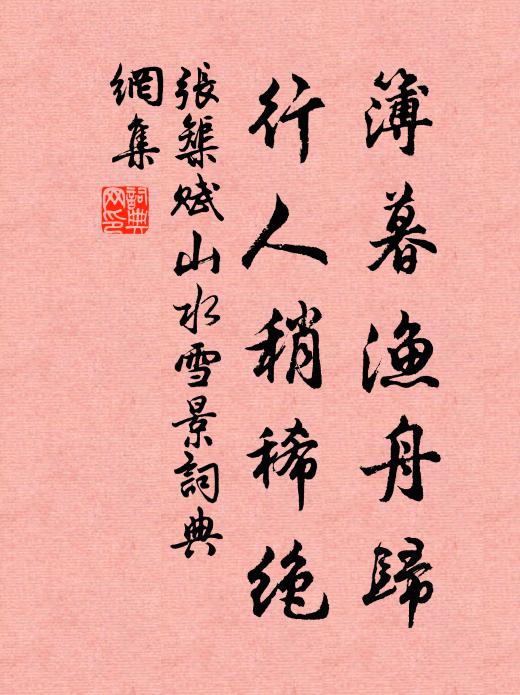 薄暮漁舟歸
行人稍稀絶
張榘賦山水雪景詞典
網集
詞典
网印